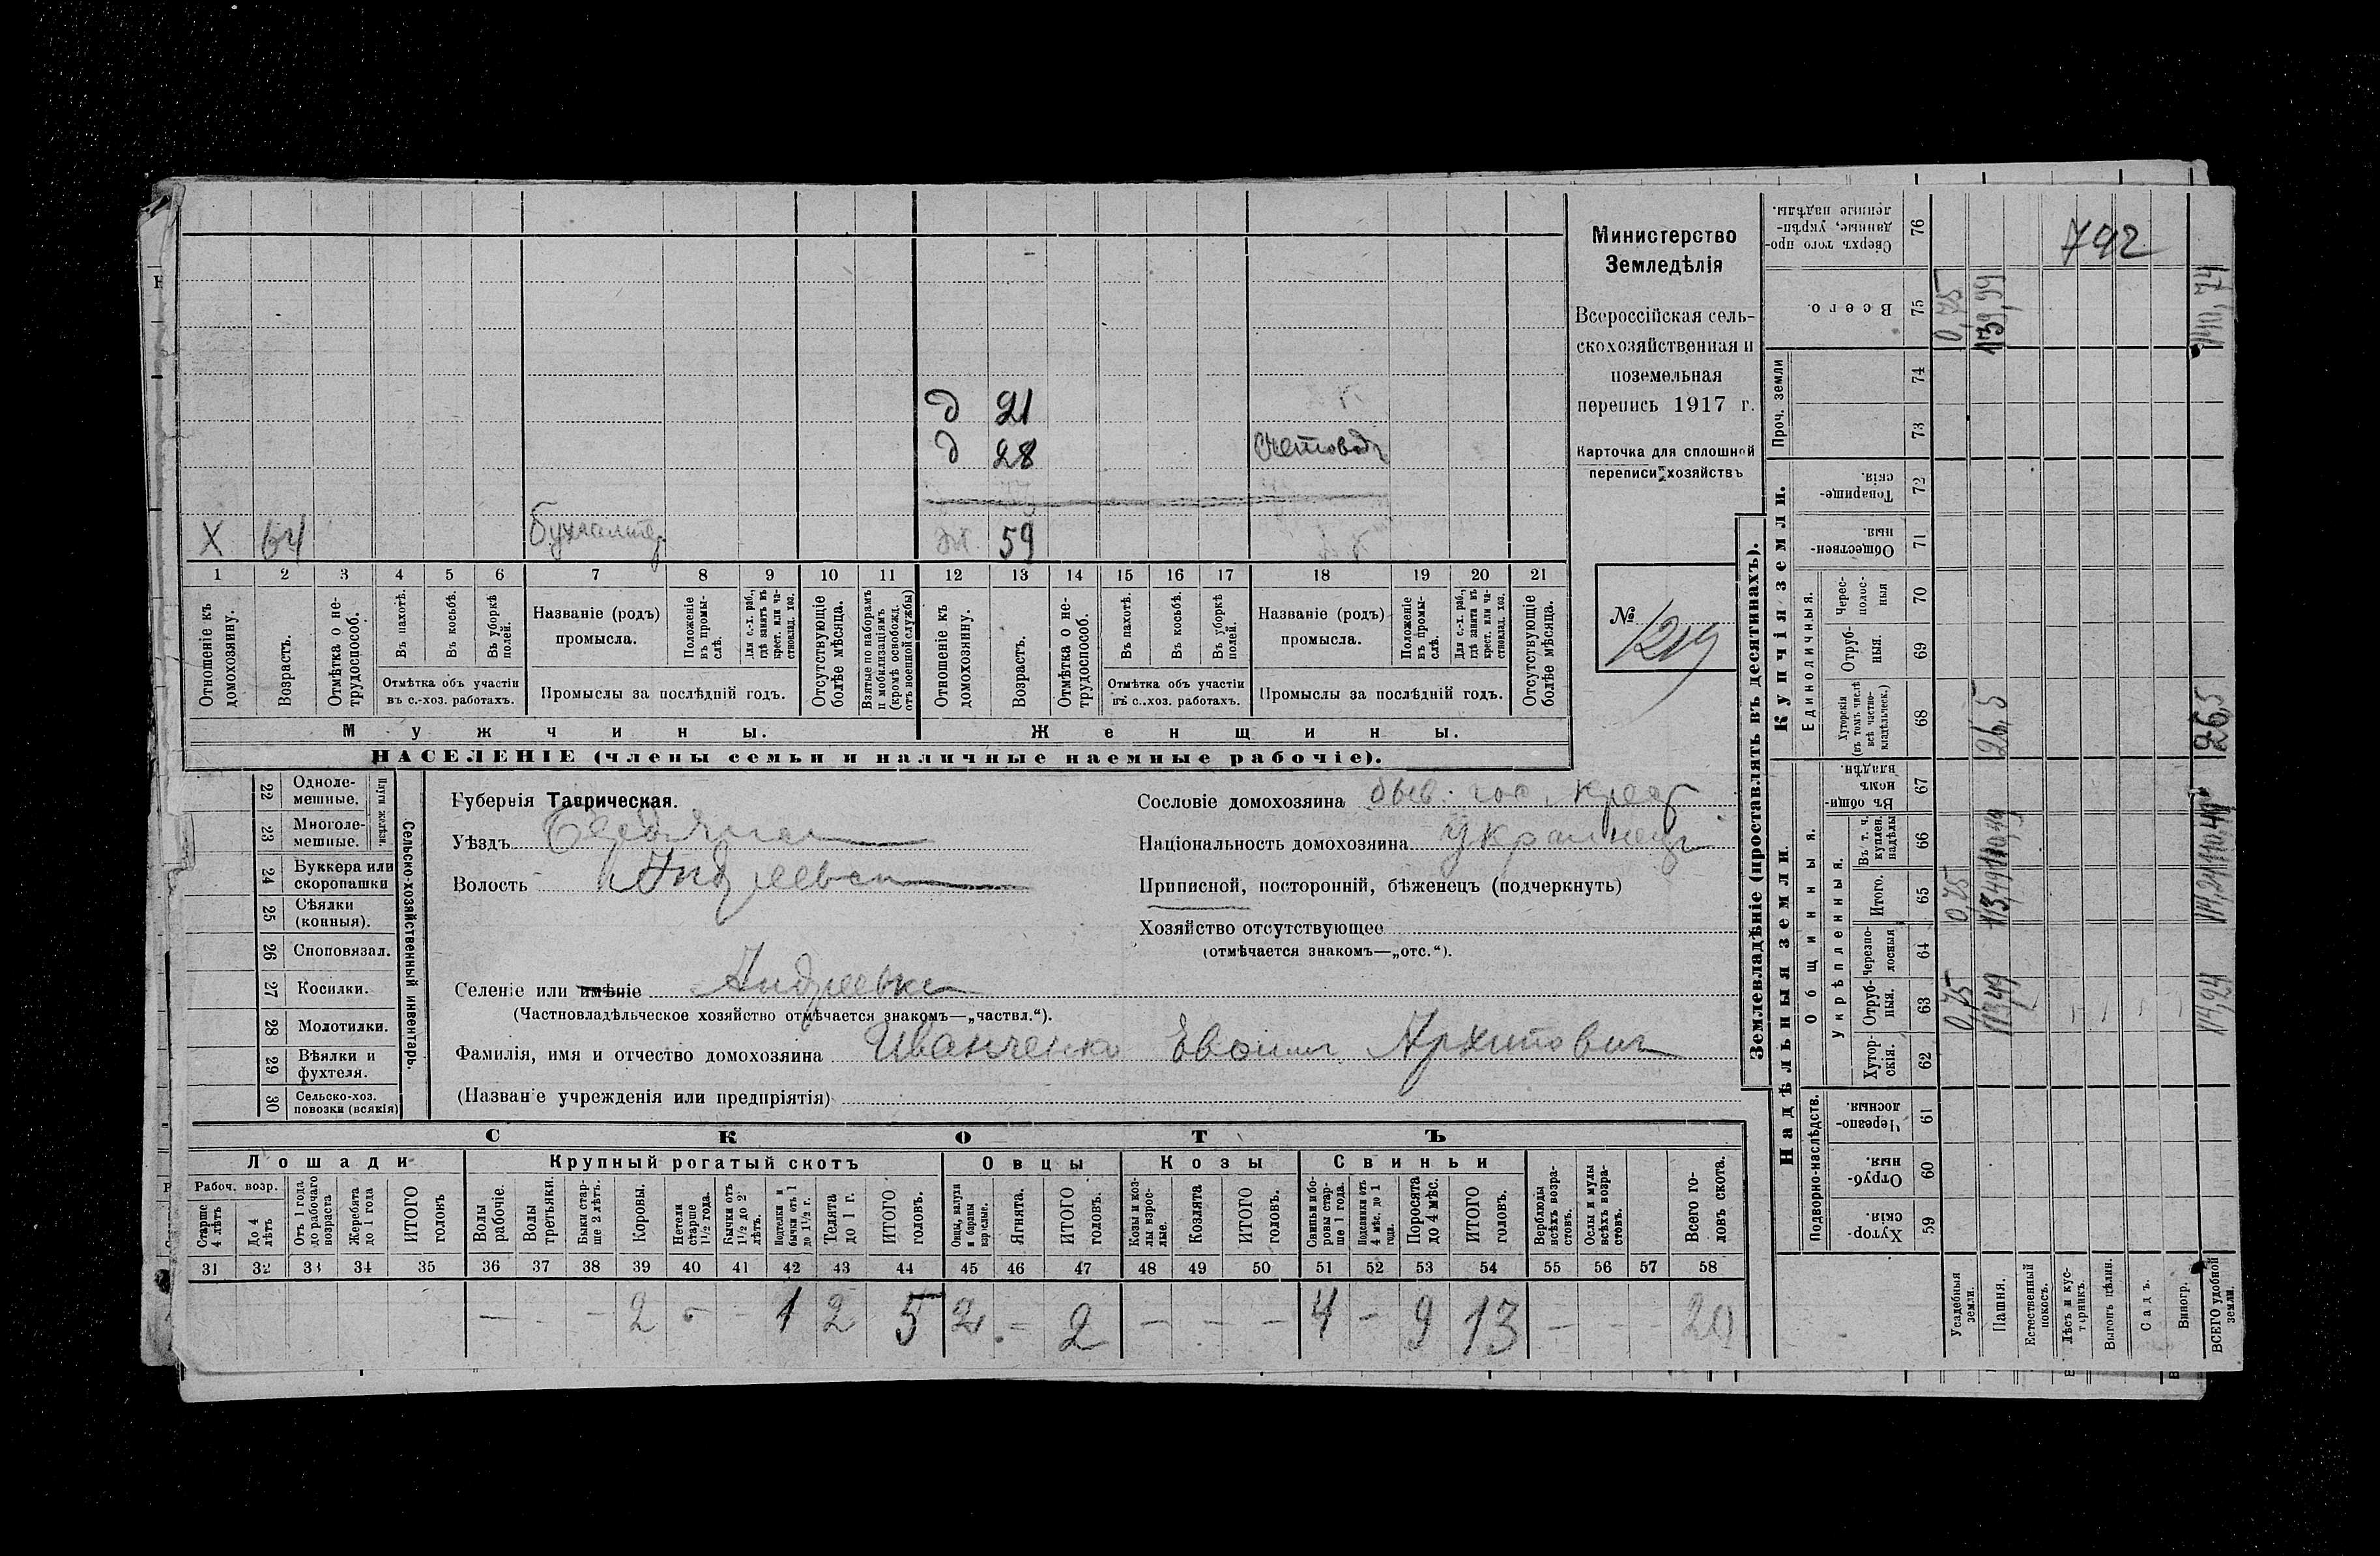 Министерство
Земледѣлія
Всероссійская сель-
скохозяйственная и
поземельная
перепись 1917 г.
Карточка для сплошной
переписи хозяйствъ
№ 1219
д 21
д 28 Счетоводъ
Х 64 Бухгалтер
59
1 2 3 4 5 6 7 8 9 10 11 12 13 14 15 16 17 18 19 20 21
Отношеніе къ домохозяину.
Возрастъ.
Отмѣтка о не-трудоспособ.
Въ пахотѣ.
Въ косьбѣ.
Въ уборкѣ полей.
Отмѣтка объ участіи въ с.-хоз. работахъ.
Названіе (родъ) промысла.
Положеніе въ промы-слѣ.
Для с.-х. раб., гдѣ занятъ въ крест. или ча-стновлад. хоз.
Промыслы за послѣдній годъ.
Отсутствующіе болѣе мѣсяца.
Взятые по наборамъ и мобилизаціямъ (кромѣ освобожд. отъ военной службы)
Отношеніе къ домохозяину.
Возрастъ.
Отмѣтка о не-трудоспособ.
Въ пахотѣ.
Въ косьбѣ.
Въ уборкѣ полей.
Отмѣтка объ участіи въ с.-хоз. работахъ.
Названіе (родъ) промысла.
Положеніе въ промы-слѣ.
Для с.-х. раб., гдѣ занятъ въ крест. или ча-стновлад. хоз.
Промыслы за послѣдній годъ.
Отсутствующіе болѣе мѣсяца.
Мужчины. Женщины.
НАСЕЛЕНІЕ (члены семьи и наличные наемные рабочіе).
Сельско-хозяйственный инвентарь.
Плуги желѣзн.
22 Одноле-мешные.
23 Многоле-мешные.
24 Буккера или скоропашки
25 Сѣялки (конныя).
26 Сноповязал.
27 Косилки.
28 Молотилки.
29 Вѣялки и фухтеля.
30 Сельско-хоз. повозки (всякія)
Губернія Таврическая.
Уѣздъ
Волость Андреевск
Селеніе или имѣніе Андреевка
(Частновладѣльческое хозяйство отмѣчается знакомъ—„частвл.“).
Фамилія, имя и отчество домохозяина Иванченко Евфим Архипович
(Названіе учрежденія или предпріятія)
Сословіе домохозяина быв. гос. крест
Національность домохозяина Украинецъ
Приписной, посторонній, бѣженецъ (подчеркнуть)
Хозяйство отсутствующее
(отмѣчается знакомъ—„отс.“).
СКОТЪ
Лошади Крупный рогатый скотъ Овцы Козы Свиньи
Рабоч. возр.
Старше 4 лѣтъ
До 4 лѣтъ
Отъ 1 года до рабочаго возраста
Жеребята до 1 года
ИТОГО головъ
Волы рабочіе.
Волы третьяки.
Быки стар-ше 2 лѣтъ.
Коровы.
Нетели старше 1½ года.
Бычки отъ 1½ до 2 лѣтъ.
Подтелки и бычки отъ 1 до 1½ г.
Телята до 1 г.
ИТОГО головъ.
Овцы, валухи и бараны взрослые.
Ягнята.
ИТОГО головъ.
Козы и коз-лы взрос-лые.
Козлята
ИТОГО головъ.
Свиньи и бо-ровы стар-ше 1 года.
Подсвинки отъ 4 мѣс. до 1 года.
Поросята до 4 мѣс.
ИТОГО головъ.
Верблюды всѣхъ возра-стовъ.
Ослы и мулы всѣхъ возра-стовъ.
Всего го-ловъ скота.
31 32 33 34 35 36 37 38 39 40 41 42 43 44 45 46 47 48 49 50 51 52 53 54 55 56 57 58
— - - 2 - - 1 2 5 2 - 2 - - - 4 - 9 13 - - - 20
Землевладѣніе (проставлять въ десятинахъ).
Надѣльныя земли. Купчія земли. Проч. земли
Подворно-наслѣдств.
Общинныя.
Укрѣпленныя.
Единоличныя.
59 Хутор-скія.
60 Отруб-ныя.
61 Черезпо-лосныя.
62 Хутор-скія.
63 Отруб-ныя.
64 Черезпо-лосныя
65 Итого.
66 Въ т. ч. куплен. надѣлы
67 Въ общин-номъ владѣн.
68 Хуторскія (въ томъ числѣ всѣ частно-владѣльческ.)
69 Отруб-ныя.
70 Черес-полос-ныя
71 Обществен-ныя.
72 Товарище-скія.
73
74
75 Всего.
76 Сверхъ того про-данные, укрѣп-ленные надѣлы.
Усадебныя земли. 0,75 0,75 0,75
Пашня. 113,49 113,49 26,5 139,99
Естественный покосъ.
Лѣсъ и кус-тарникъ.
Выгонъ цѣлин.
Садъ.
Виногр.
ВСЕГО удобной земли. 114,24 114,24 26,5 140,74
742